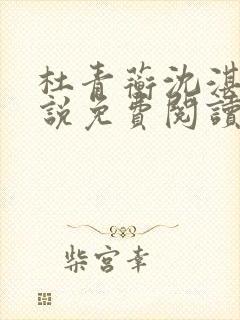 杜青蘅沈湛
說免費閱讀
柴宮幸